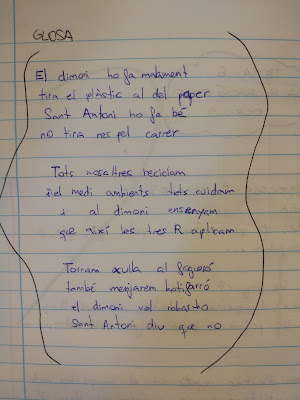 GLOSA
El dimoni ho fa malament
tira el plàstic al del paper
Sant Antoni ho fa bé
no tira res pel carrer
Tots nosaltres reciclam
del medi ambients tots cuidam
i al dimoni ensenyam
que així les tres R aplicam
Torram xulla al fogueró
també menjarem botifarró
el dimoni vol robarto
Sant Antoni diu que no